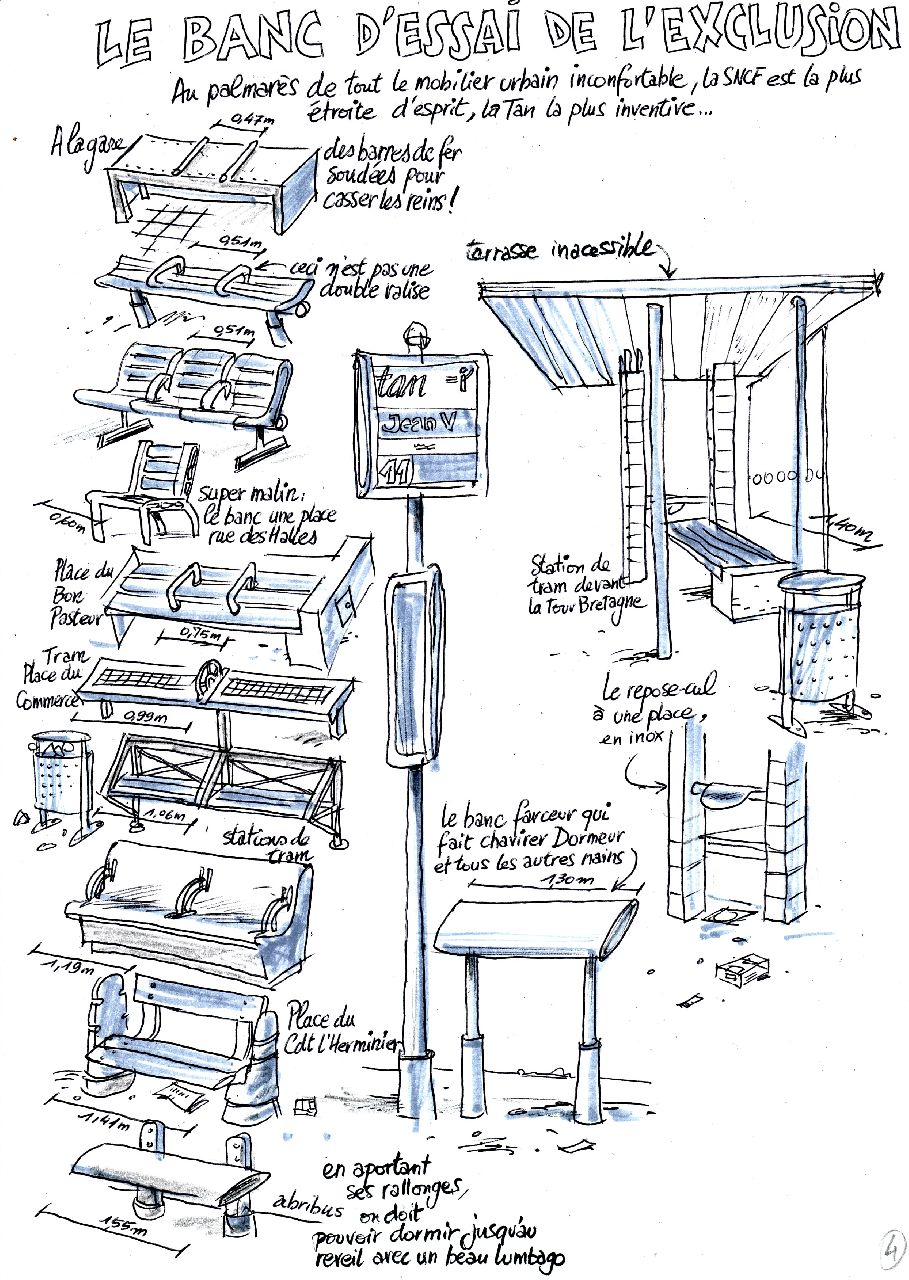 LE BANC D'ESSAI DE L'EXCLUSION
Au palmarès de tout le mobilier urbain inconfortable, la SNCF est la plus
étroite d'esprit, la Tan la plus inventive...
A la gare
0,47m
des barres de fer
soudées pour
casser les reins !
0,51m
ceci n'est pas une
double valise
0,51m
super malin :
le banc une place
rue des Halles
0,60m
Place du
Bon
Pasteur
0,75m
Tram
Place du
Commerce
0,99m
1,06m
stations de
tram
1,19m
Place du
Cdt l'Herminier
1,41m
155m
abribus
en aportant
ses rallonges,
on doit
pouvoir dormir jusqu'au
reveil avec un beau lumbago
tan
Jean V
11
terrasse inacessible
1,40m
Station de
tram devant
la Tour Bretagne
Le repose-cul
à une place,
en inox
le banc farceur qui
fait chavirer Dormeur
et tous les autres nains
1,30m
4